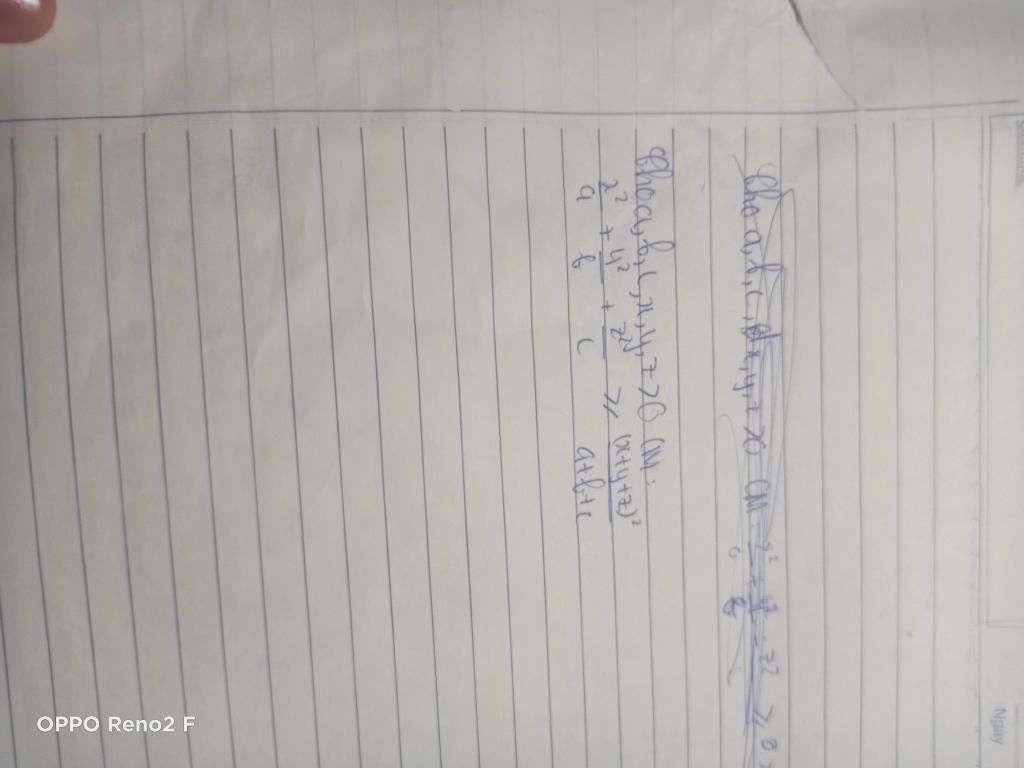 Cho a, b, c, x, y, z > 0 CM: x²/a + y²/b + z²/c ≥
Cho a, b, c, x, y, z > 0 CM:
x²/a + y²/b + z²/c ≥ (x+y+z)²/a+b+c
Ngày
OPPO Reno2 F